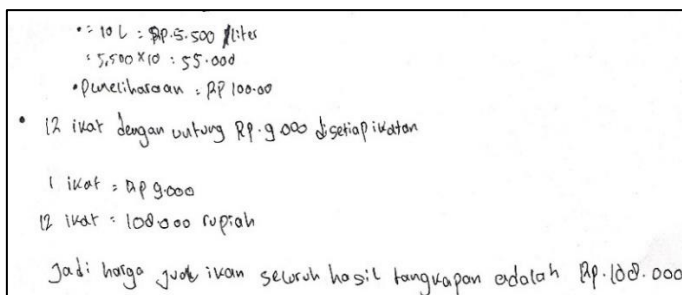 • = 10 L = Rp.5.500 /liter
= 5,500 x 10 = 55.000
• Pemeliharaan = Rp 100.00
• 12 ikat dengan untung Rp.9000 disetiap ikatan
1 ikat = Rp 9.000
12 ikat = 108.000 rupiah
Jadi harga jual ikan seluruh hasil tangkapan adalah Rp.108.000